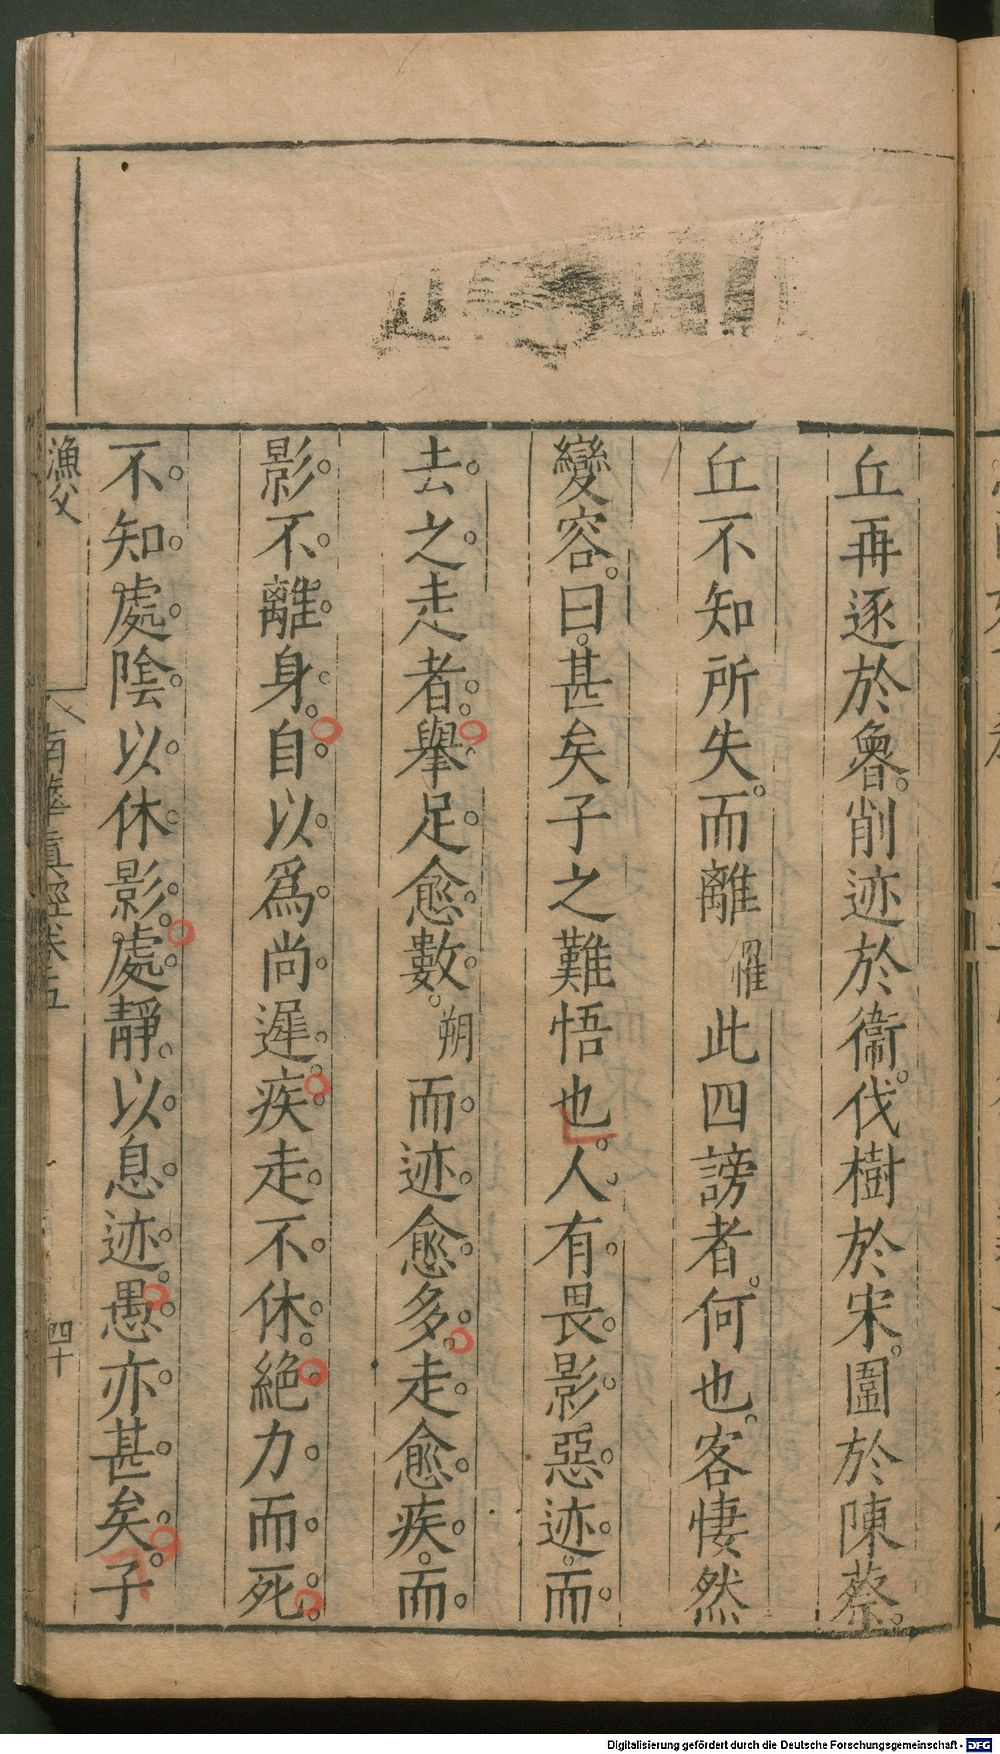 丘再逐於魯。削迹於衞。伐樹於宋。圍於陳蔡。
丘不知所失。而離罹此四謗者。何也。客悽然
變容。曰。甚矣子之難悟也。人有畏影惡迹。而
去之走者。舉足愈數。朔而迹愈多。走愈疾。而
影不離身。自以爲尚遲。疾走不休。絕力而死。
不知處陰以休影。處靜以息迹。愚亦甚矣。子
漁父
南華眞經卷五
四十
Digitalisierung gefördert durch die Deutsche Forschungsgemeinschaft - DFG